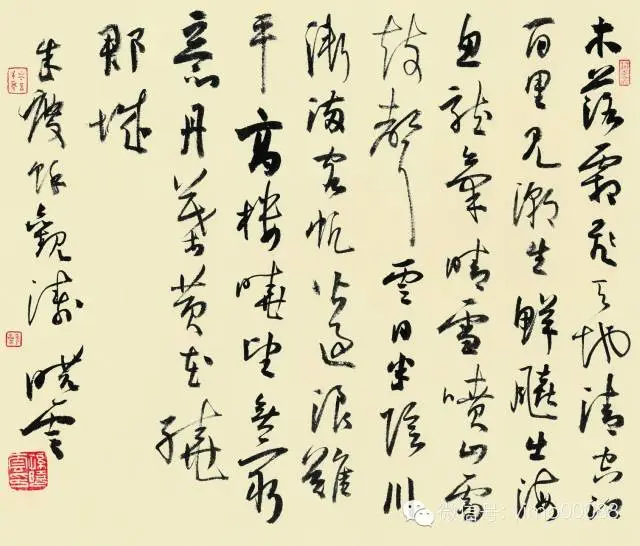 木落霜飛天地清空江
百里見潮生鮮飆出海
魚龍氣晴雪噴山雷
鼓聲雲日半陰川
漸滿客帆皆過浪難
平高樓曉望無窮
意丹葉黄花繞
郡城
朱慶餘觀濤 曉雲
微信号: